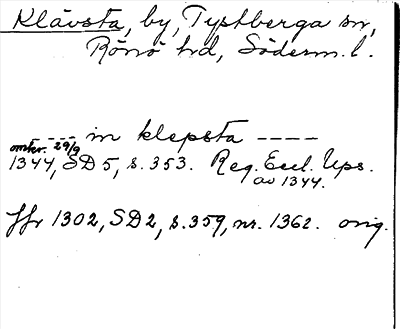 Klävsta, by, Tystberga sn,
Rönö hd, Söderm. l.
---- in klepsta ----
omkr. 29/9
1344, SD 5, s. 353. Reg. Eccl. Ups.
av 1344.
Jfr 1302, SD 2, s. 359, nr. 1362. orig.